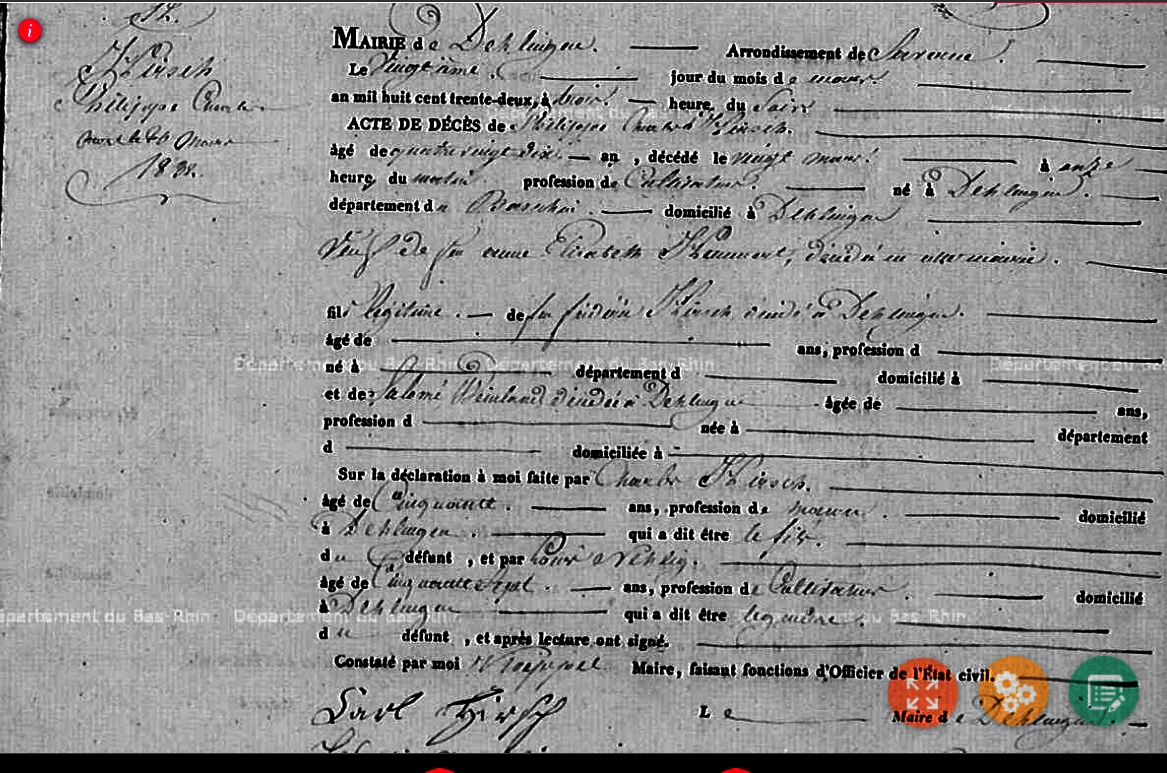 Hirsch
Philippe Charles
mort le 20 Mars
1832.
MAIRIE de Dehlingen. Arrondissement de Saverne.
Le Vingtième jour du mois de mars
an mil huit cent trente-deux, à trois heure, du Soir
ACTE DE DÉCÈS de Philippe Charles Hirsch.
âgé de quatre vingt dix an , décédé le vingt mars à onze
heure, du matin profession de Cultivateur né à Dehlingen
département du Bas rhin domicilié à Dehlingen
Veuf de feu anne Elisabeth décédée en cette mairie.
fils légitime. de feu Hirsch décédé à Dehlingen.
âgé de ans, profession d
né à département d domicilié à
et de Salomé Weinland décédée à Dehlingen âgée de ans,
profession d née à département
d domiciliée à
Sur la déclaration à moi faite par Charles Hirsch.
âgé de Cinquante ans, profession de domicilié
à Dehlingen qui a dit être le fils.
du défunt , et par
âgé de Cinquante sept ans, profession de Cultivateur domicilié
à Dehlingen qui a dit être le gendre.
du défunt , et après lecture ont signé.
Constaté par moi Maire, faisant fonctions d'Officier de l'État civil.
Carl Hirsch
Le Maire de Dehlingen.
Département du Bas-Rhin